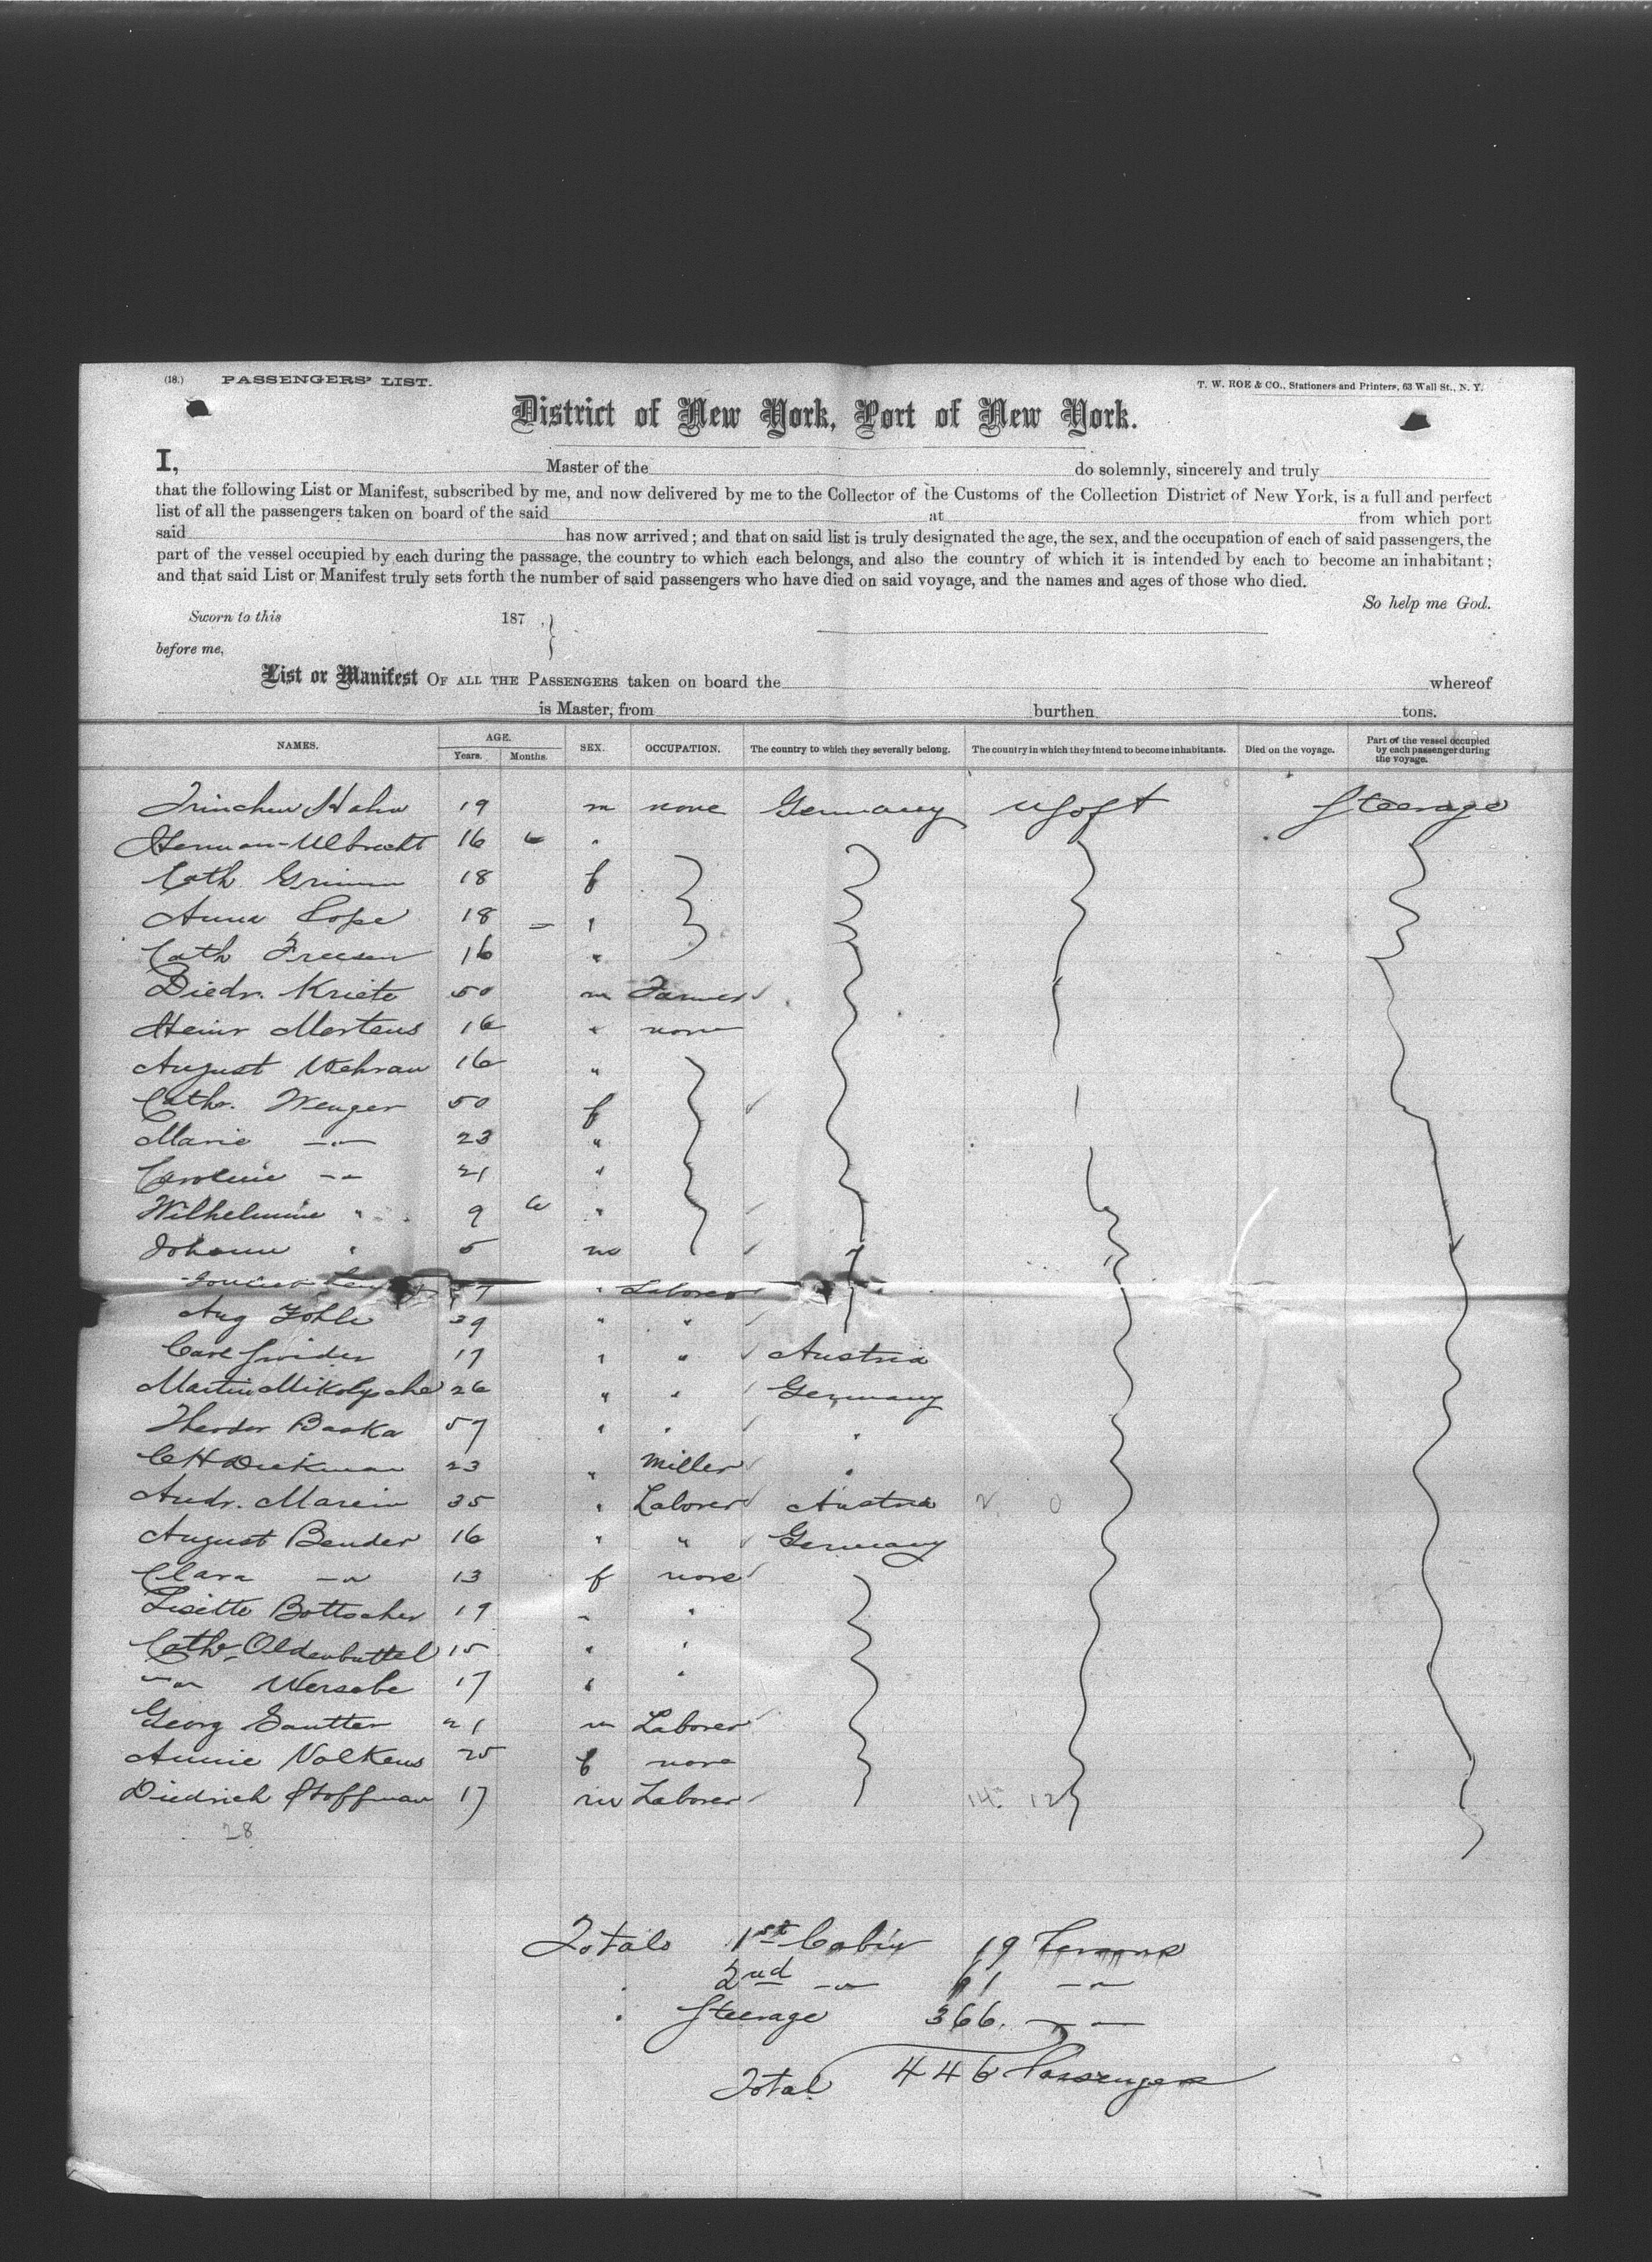 (18.) PASSENGERS' LIST. T. W. ROE & CO., Stationers and Printers, 63 Wall St., N. Y.
District of New York, Port of New York.
I, Master of the do solemnly, sincerely and truly
that the following List or Manifest, subscribed by me, and now delivered by me to the Collector of the Customs of the Collection District of New York, is a full and perfect
list of all the passengers taken on board of the said at from which port
said has now arrived; and that on said list is truly designated the age, the sex, and the occupation of each of said passengers, the
part of the vessel occupied by each during the passage, the country to which each belongs, and also the country of which it is intended by each to become an inhabitant;
and that said List or Manifest truly sets forth the number of said passengers who have died on said voyage, and the names and ages of those who died.
So help me God.
Sworn to this 187 ,
before me,
List or Manifest OF ALL THE PASSENGERS taken on board the whereof
is Master, from burthen tons.
NAMES. AGE. Years. Months. SEX. OCCUPATION. The country to which they severally belong. The country in which they intend to become inhabitants. Died on the voyage. Part of the vessel occupied by each passenger during the voyage.
Trinchen Hahn 19 m none Germany Steerage
Herman Ulbrecht 16 "
Cath Grimm 18 f
Anna Pope 18 "
Cath Freesen 16 "
Diedr. Kriete 50 m Farmer
Heinr Mertens 16 " none
August Wehran 16 "
Cathr. Wenger 50 f
Marie -"- 23 "
Caroline -"- 21 "
Wilhelmine " 9 "
Johann " 5 m
" Laborer
Aug Zohle 39 " "
Carl 17 " " Austria
Martin 26 " " Germany
Theodor Baska 57 " " "
C H Diekman 23 " Miller "
Andr. Marein 35 " Laborer Austria 2 0
August Bender 16 " " Germany
Clara -"- 13 f none
Lisette Bottscher 19 " "
Cathr. Oldenbuttel 15 " "
-"- Wersebe 17 " "
Georg Sautter 21 m Laborer
Annie Volkens 25 f none
Diedrich Hoffman 17 m Laborer 14 12
28
Totals 1st Cabin 19 Persons
" 2nd -"- 61 -"-
" Steerage 366. -"-
Total 446 Passengers